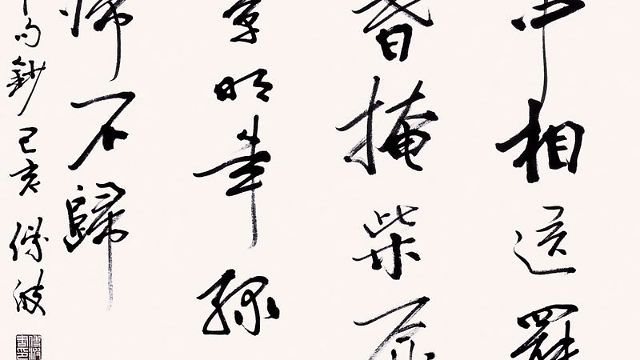 中相送罷
暮掩柴扉
草明年綠
歸不歸
句鈔己亥波